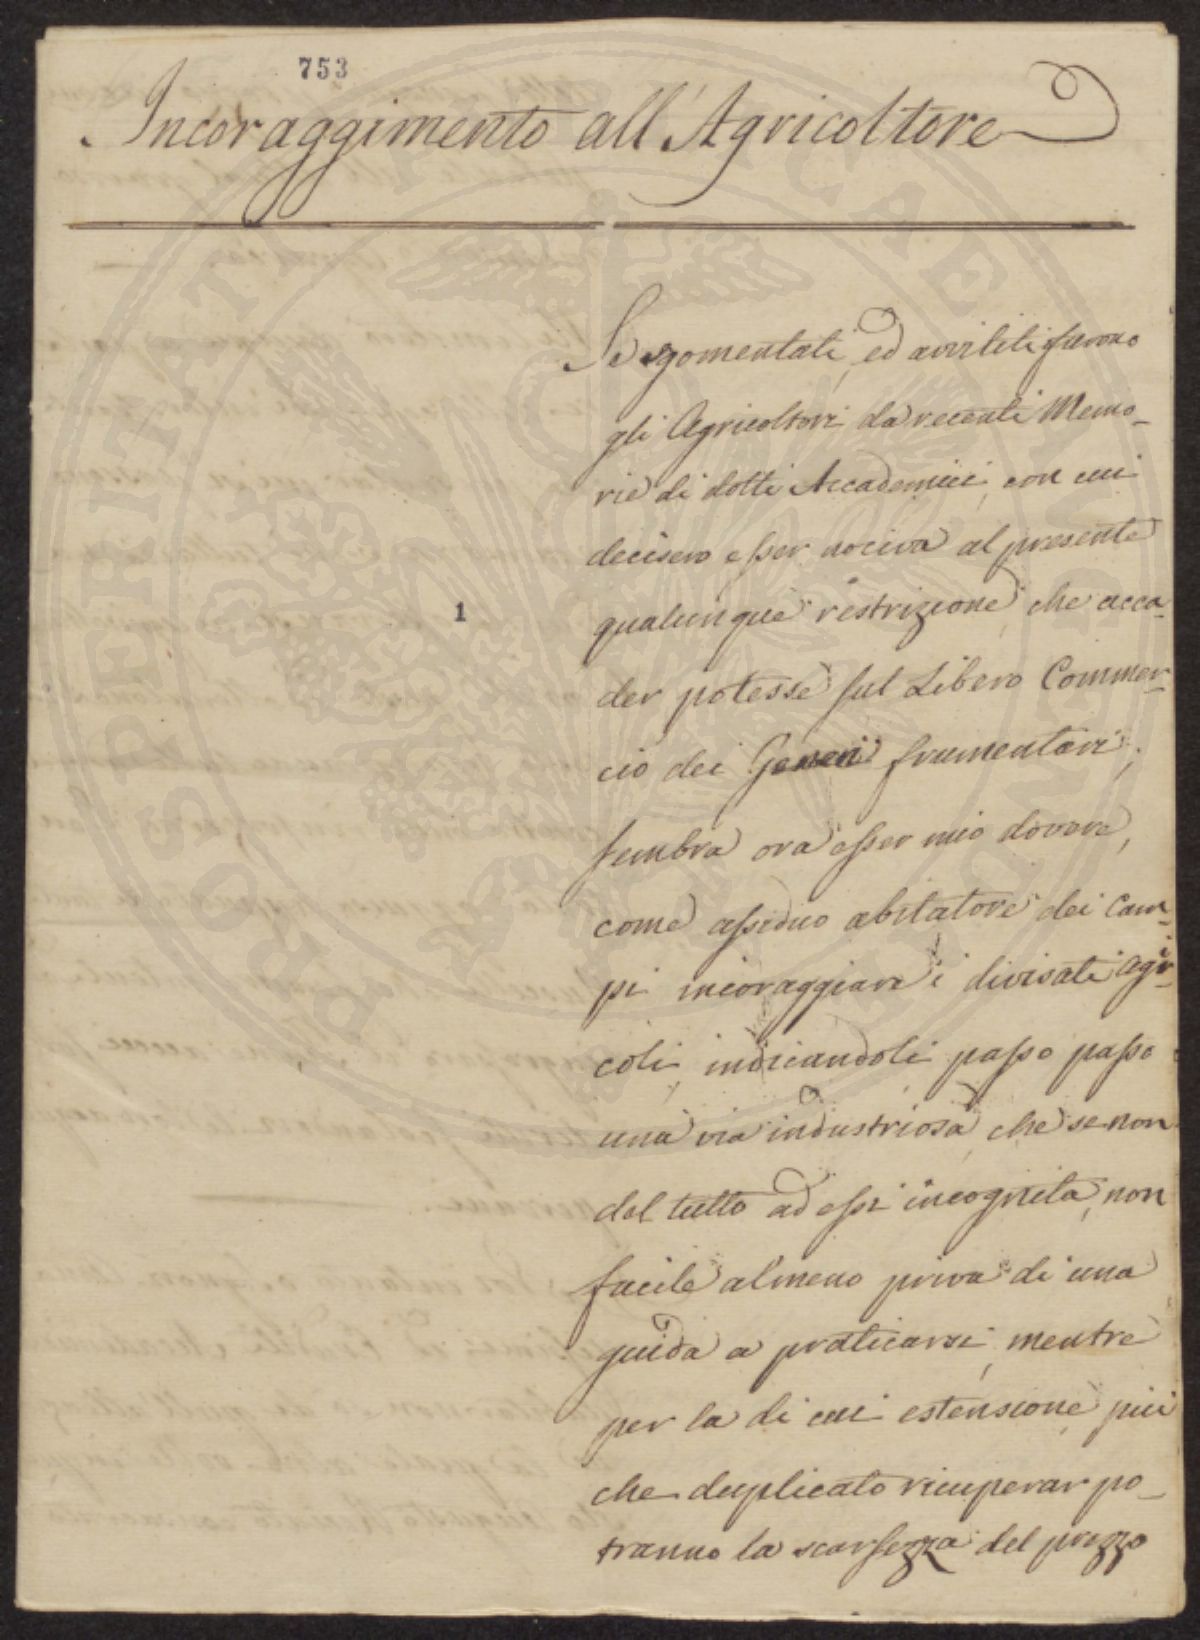 753
Incoraggimento all'Agricoltore
Se sgomentati, ed avviliti furono
gli Agricoltori da recenti Memo-
rie di dotti Accademici, con cui
decisero esser nociva al presente
1
qualunque restrizione, che acca-
der potesse sul Libero Commer-
cio dei Generi frumentari;
sembra ora esser mio dovere,
come assiduo abitatore dei Cam-
pi incoraggiare i divisati Agri-
coli, indicandoli passo passo
una via industriosa, che se non
del tutto ad essi incognita, non
facile almeno priva di una
guida a praticarsi, mentre
per la di cui estensione più
che duplicato ricuperar po-
tranno la scarsezza del prezzo